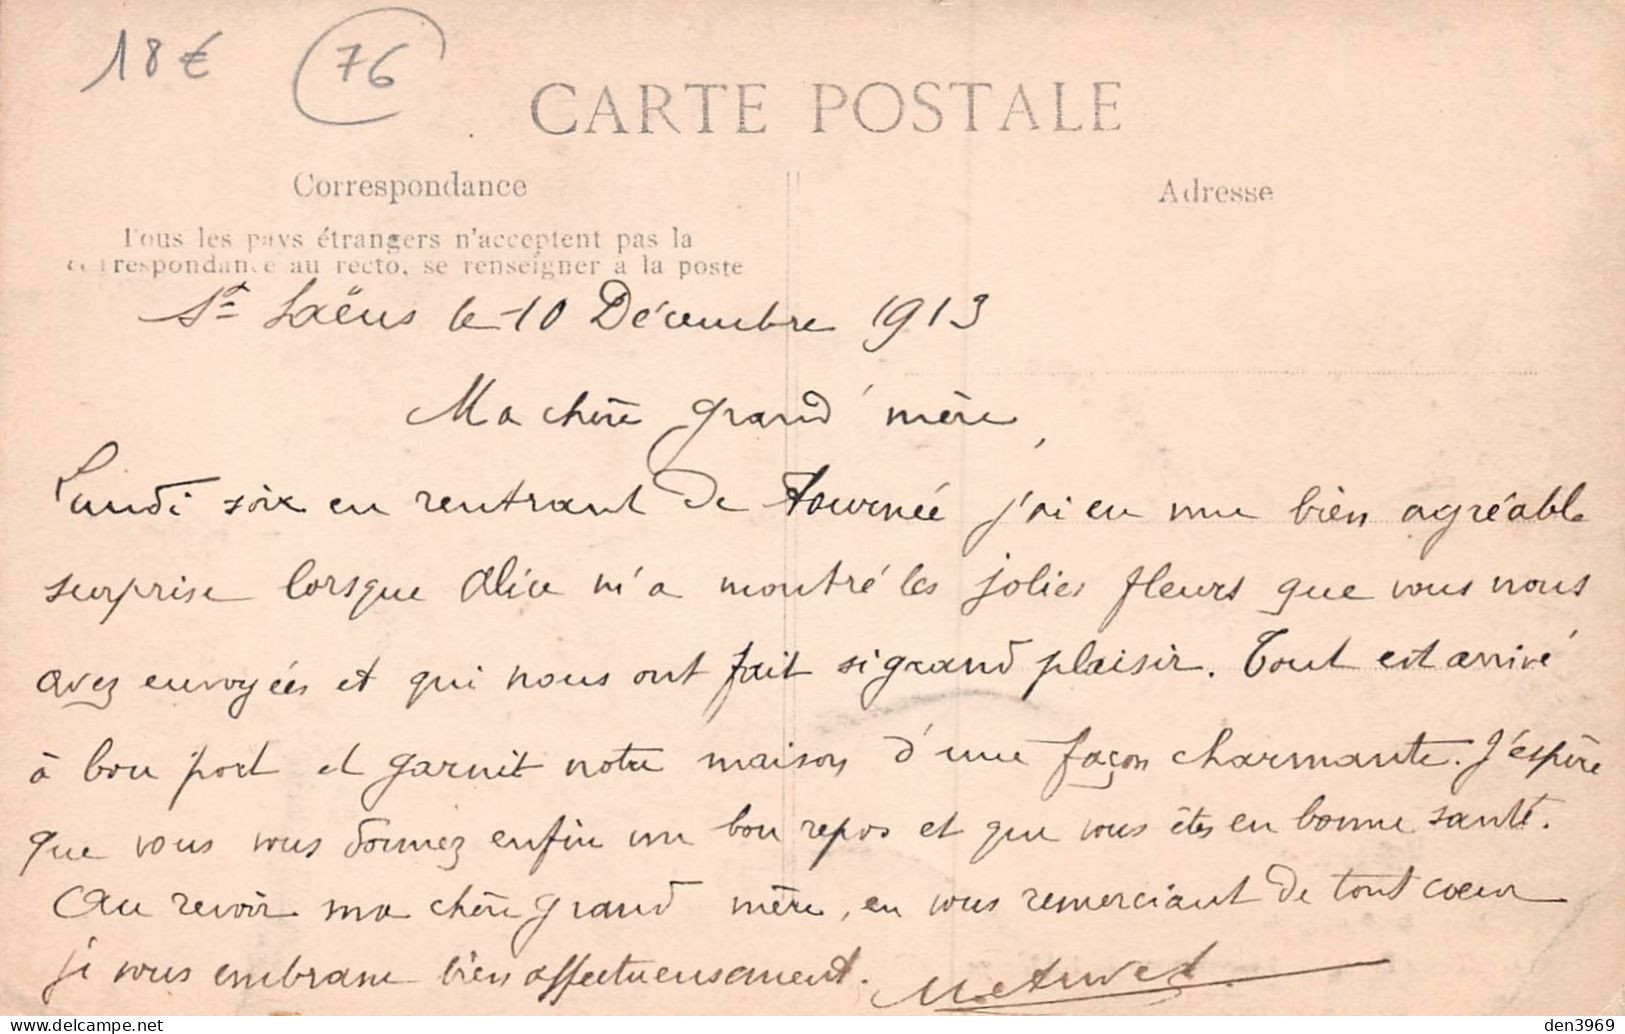 18€ 76
CARTE POSTALE
Correspondance
Adresse
Tous les pays étrangers n'acceptent pas la
correspondance au recto, se renseigner à la poste
St Saëns le 10 Décembre 1913
Ma chère grand'mère,
Lundi soir en rentrant de tournée j'ai eu une bien agréable
surprise lorsque Alice m'a montré les jolies fleurs que vous nous
avez envoyées et qui nous ont fait si grand plaisir. Tout est arrivé
à bon port et garnit notre maison d'une façon charmante. J'espère
que vous vous donnez enfin un bon repos et que vous êtes en bonne santé.
Au revoir ma chère grand mère, en vous remerciant de tout coeur
je vous embrasse bien affectueusement.
den3969